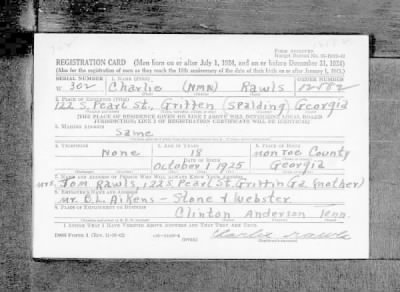 REGISTRATION CARD (Men born on or after July 1, 1924, and on or before December 31, 1924)
(Also for the registration of men as they reach the 18th anniversary of the date of their birth on or after January 1, 1925.)
SERIAL NUMBER 1. NAME (Print) ORDER NUMBER
W 302 Charlie (NMN) Rawls 12582
(First) (Middle) (Last)
2. PLACE OF RESIDENCE (Print)
122 S. Pearl St., Griffin (Spalding) Georgia
[THE PLACE OF RESIDENCE GIVEN ON LINE 2 ABOVE WILL DETERMINE LOCAL BOARD
JURISDICTION; LINE 2 OF REGISTRATION CERTIFICATE WILL BE IDENTICAL]
3. MAILING ADDRESS
Same
4. TELEPHONE 5. AGE IN YEARS 6. PLACE OF BIRTH
None 18 Monroe County
DATE OF BIRTH
October 1 1925 Georgia
7. NAME AND ADDRESS OF PERSON WHO WILL ALWAYS KNOW YOUR ADDRESS
Mrs Tom Rawls, 122 S Pearl St. Griffin Ga (mother)
8. EMPLOYER'S NAME AND ADDRESS
Mr. B.L. Aikens - Stone & Webster
9. PLACE OF EMPLOYMENT OR BUSINESS
Clinton Anderson Tenn.
I AFFIRM THAT I HAVE VERIFIED ABOVE ANSWERS AND THAT THEY ARE TRUE.
DSS Form 1 (Rev. 11-16-42) Charlie Rawls